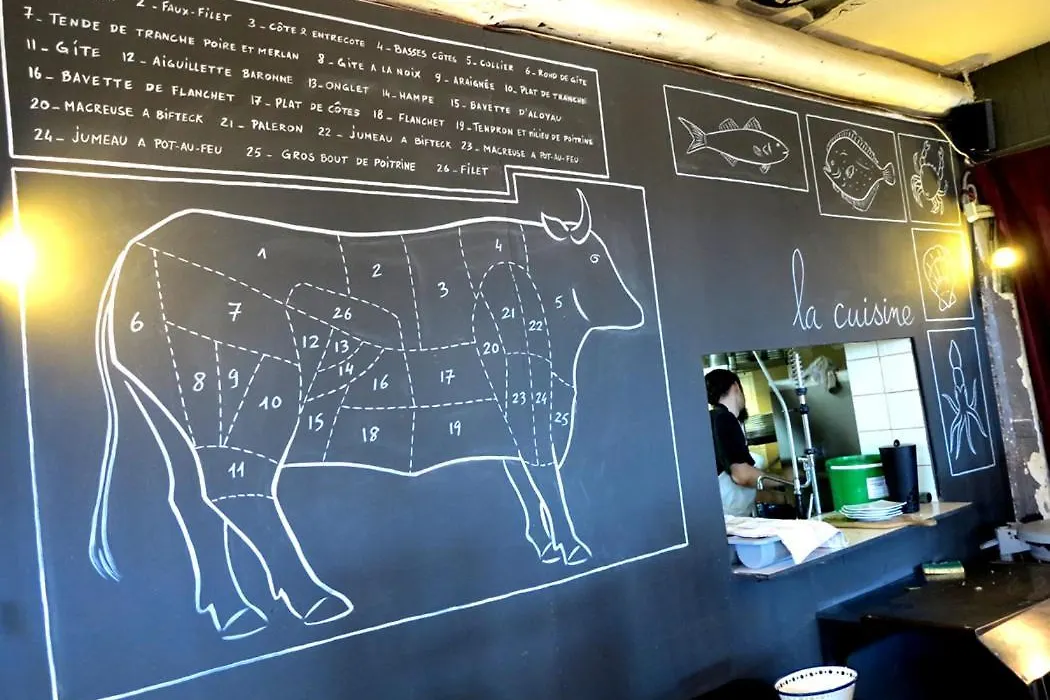 2 - FAUX-FILET 3 - CÔTE & ENTRECOTE 4 - BASSES CÔTES 5 - COLLIER 6 - ROND DE GÎTE
7 - TENDE DE TRANCHE POIRE ET MERLAN 8 - GÎTE A LA NOIX 9 - ARAIGNÉE 10 - PLAT DE TRANCHE
11 - GÎTE 12 - AIGUILLETTE BARONNE 13 - ONGLET 14 - HAMPE 15 - BAVETTE D'ALOYAU
16 - BAVETTE DE FLANCHET 17 - PLAT DE CÔTES 18 - FLANCHET 19 - TENDRON ET MILIEU DE POITRINE
20 - MACREUSE A BIFTECK 21 - PALERON 22 - JUMEAU A BIFTECK 23 - MACREUSE A POT-AU-FEU
24 - JUMEAU A POT-AU-FEU 25 - GROS BOUT DE POITRINE 26 - FILET
1 2 3 4
6 7 26 21 22 5
12 13 14 20
8 9 10 16 17 23 24 25
15 18 19
11
la cuisine